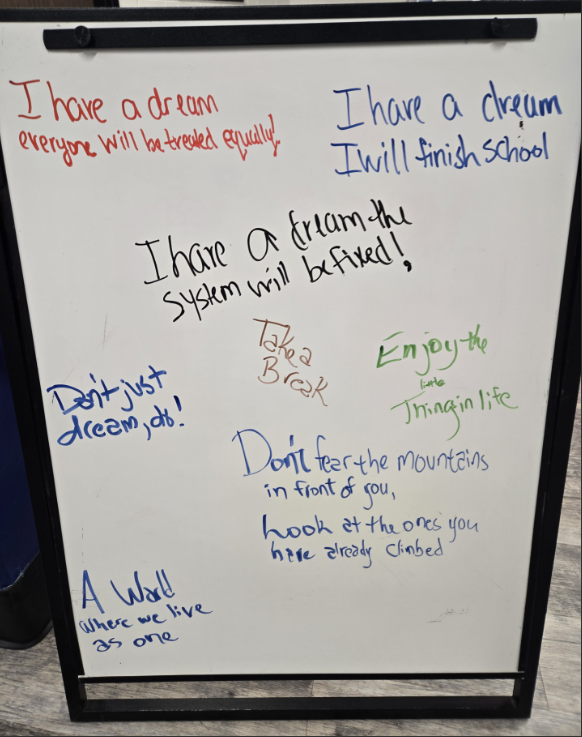 I have a dream
everyone will be treated equally!
I have a dream
I will finish school
I have a dream the
system will be fixed!
Take a
Break
Enjoy the
little
Thing in life
Don't just
dream, do!
Don't fear the mountains
in front of you,
Look at the ones you
have already climbed
A World
where we live
as one